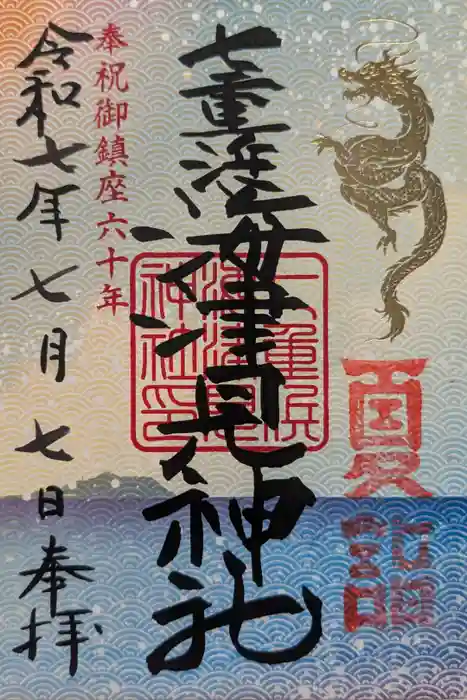 夏詣
七重浜海津見神社
七重浜海津見神社印
奉祝御鎮座六十年
令和七年七月七日奉拝